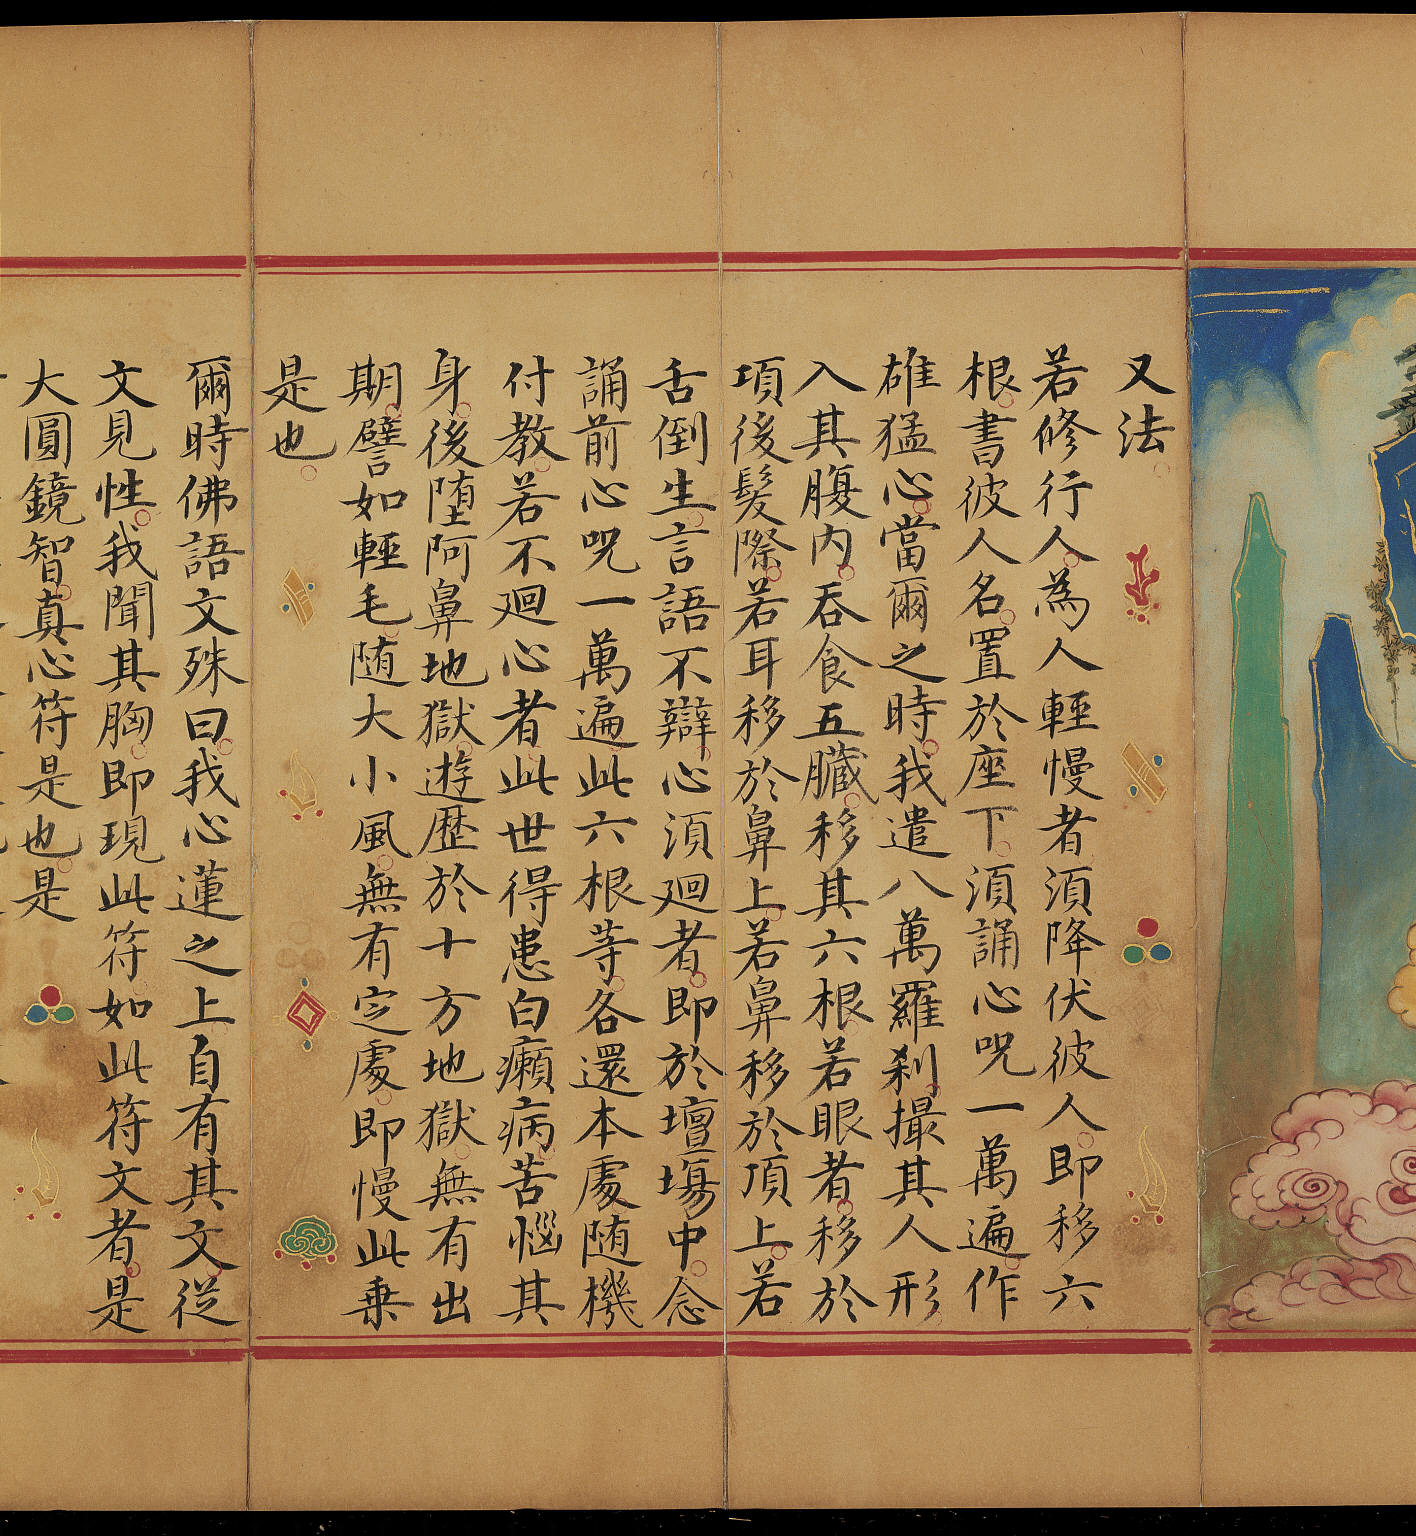 又法
若修行人為人輕慢者須降伏彼人即移六
根書彼人名置於座下須誦心呪一萬遍作
雄猛心當爾之時我遣八萬羅剎撮其人形
入其腹內吞食五臟移其六根若眼者移於
項後髮際若耳移於鼻上若鼻移於頂上若
舌倒生言語不辯心須廻者即於壇場中念
誦前心呪一萬遍此六根等各還本處随機
付教若不廻心者此世得患白癩病苦惱其
身後墮阿鼻地獄遊歷於十方地獄無有出
期譬如輕毛随大小風無有定處即慢此乗
是也
爾時佛語文殊曰我心蓮之上自有其文從
文見性我聞其胸即現此符如此符文者是
大圓鏡智真心符是也是